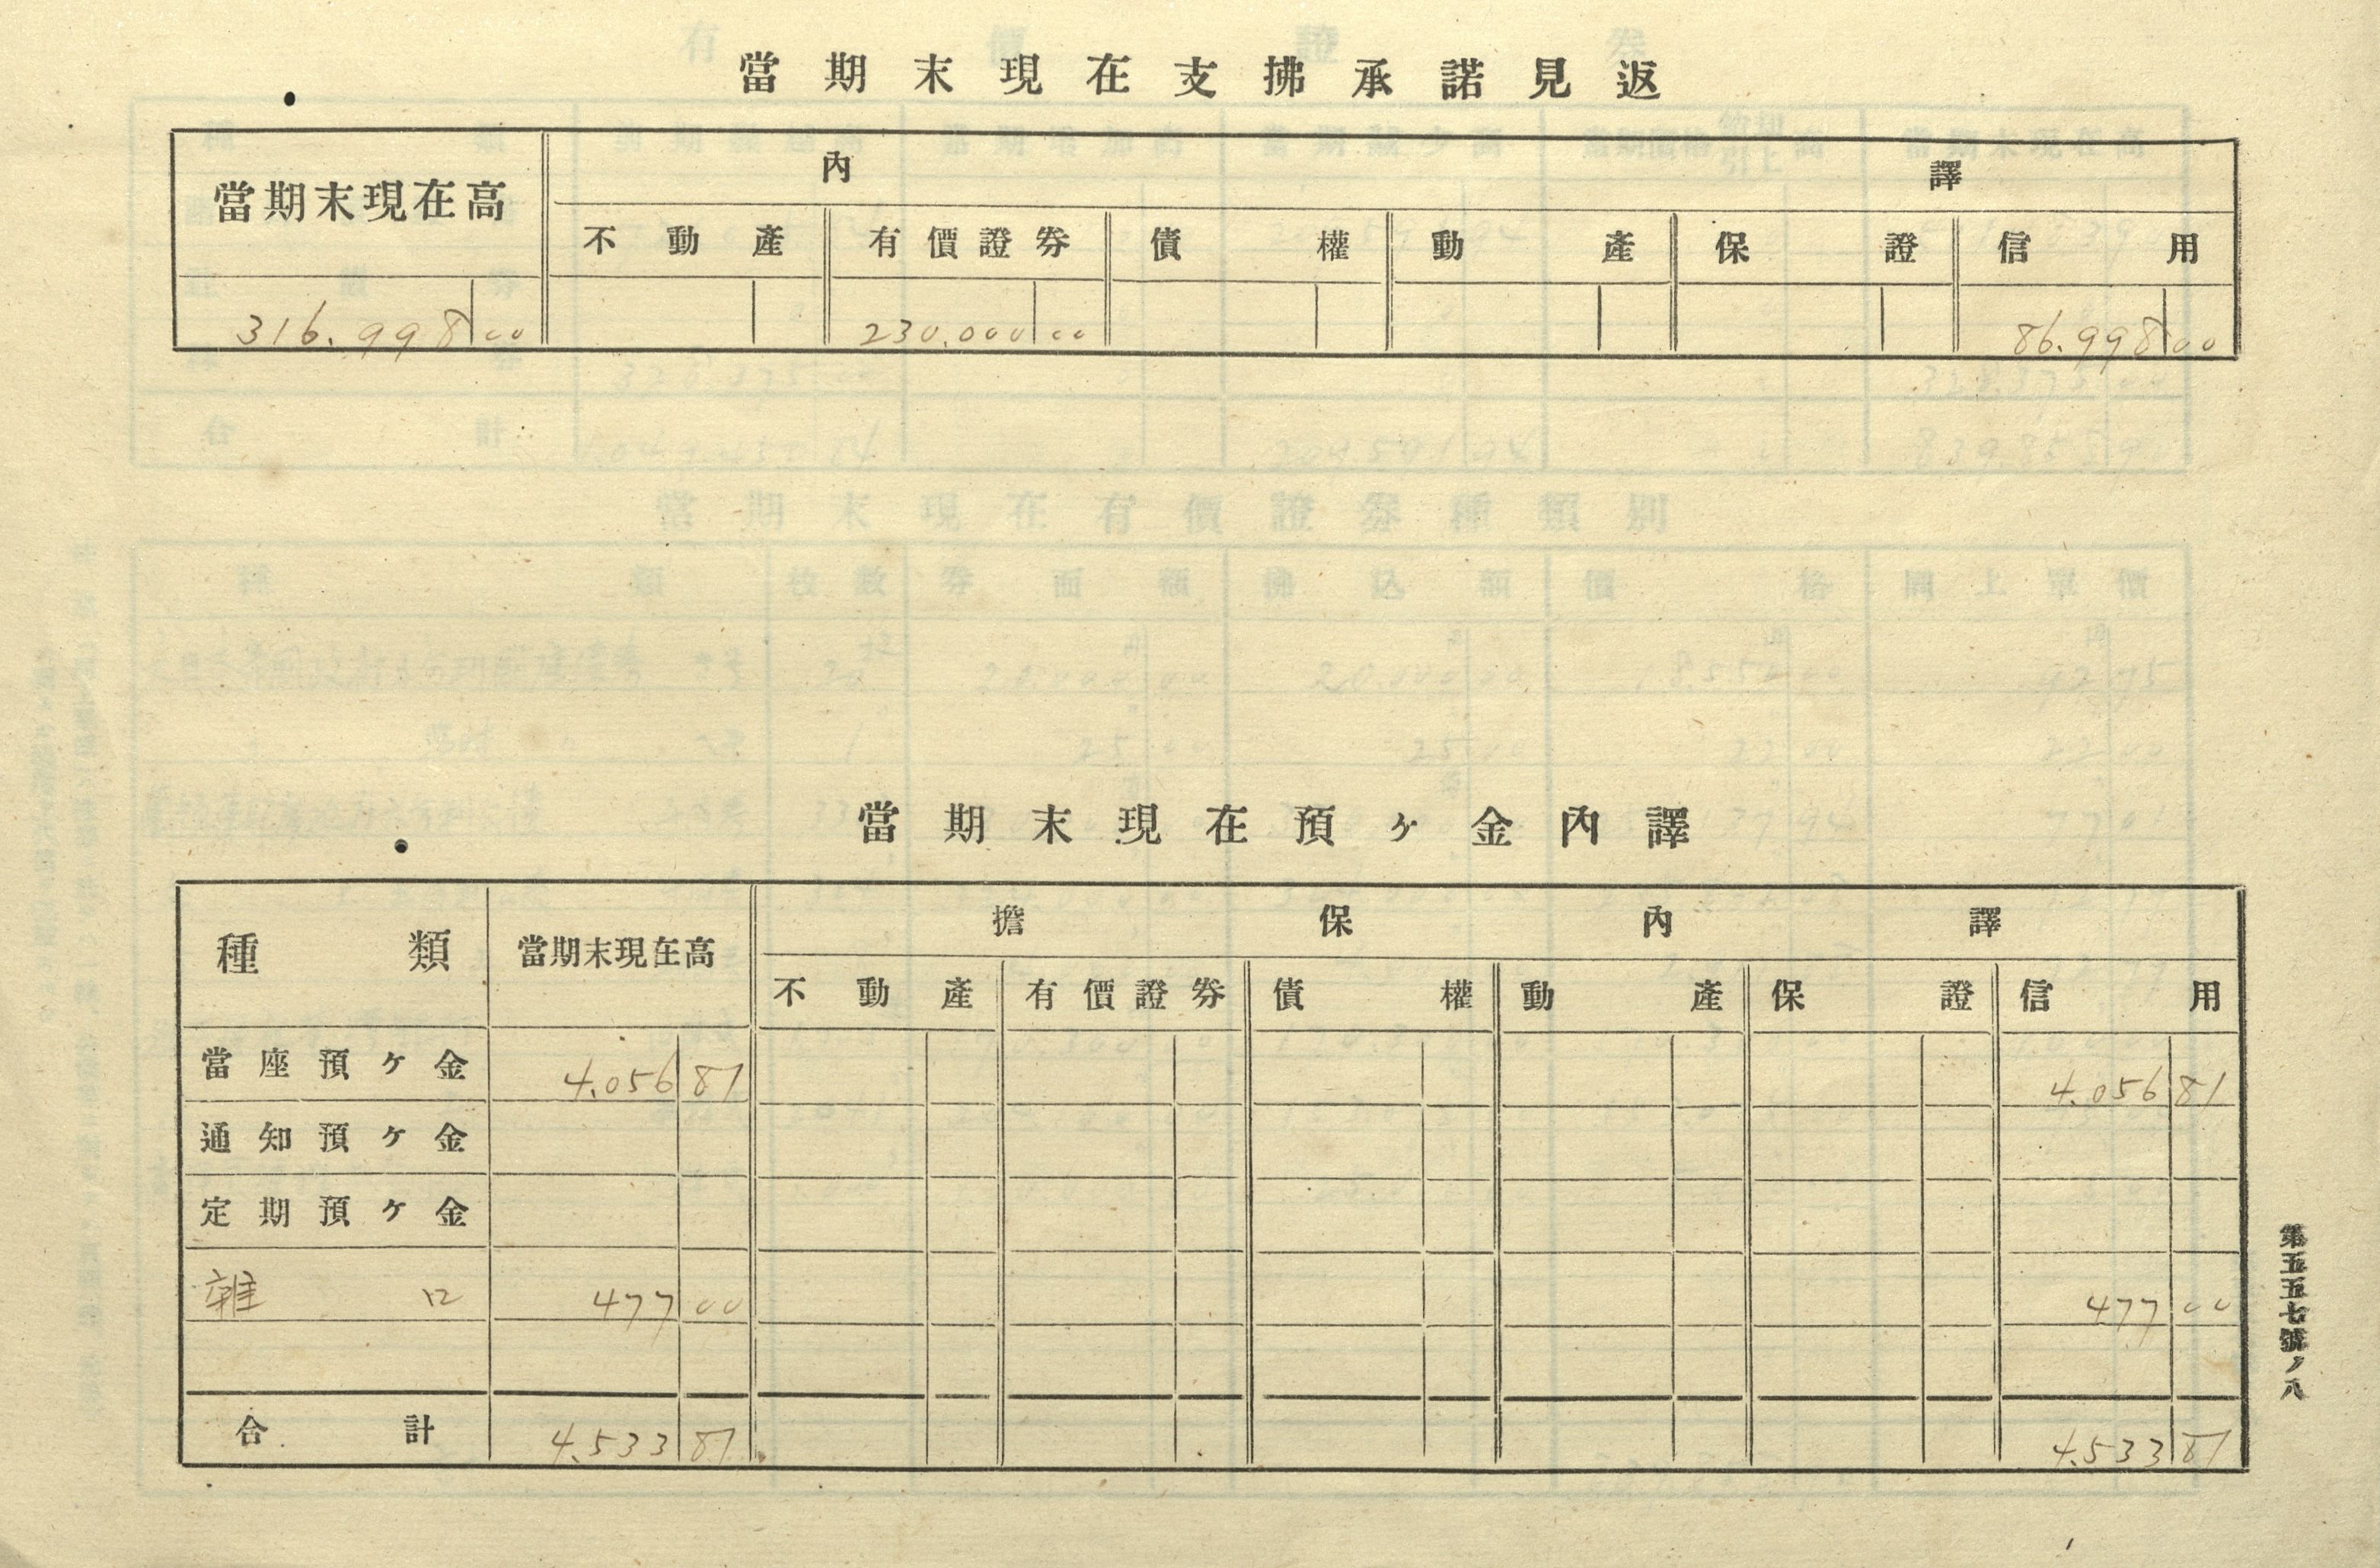 當期末現在支拂承諾見返
當期末現在高 內譯
不動產 有價證券 債權 動產 保證 信用
316.998 00 230.000 00 86.998 00
當期末現在預ヶ金內譯
種類 當期末現在高 擔保內譯
不動產 有價證券 債權 動產 保證 信用
當座預ヶ金 4.056 81 4.056 81
通知預ヶ金
定期預ヶ金
雜口 477 00 477 00
合計 4.533 81 4.533 81
第五五七號ノ八